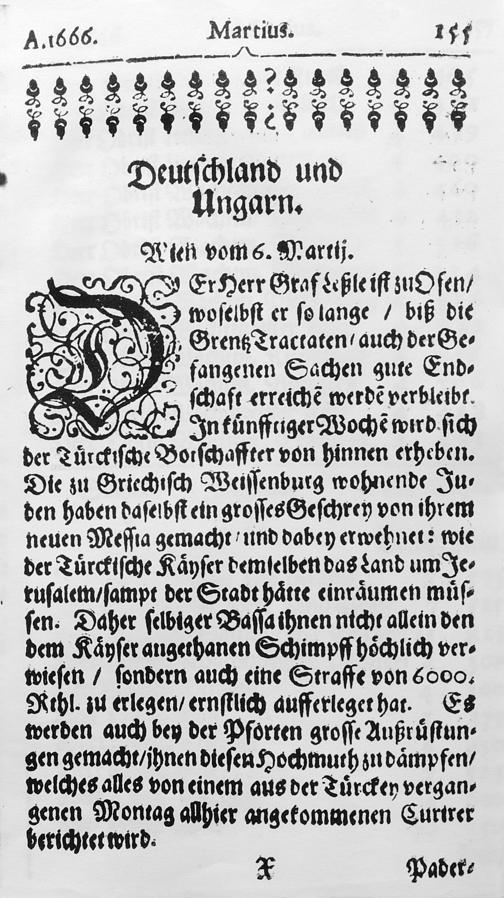 A. 1666. Martius. 155
Deutschland und
Ungarn.
Wien vom 6. Martij.
DEr Herr Graf Leßle ist zu Ofen/
woselbst er so lange / biß die
Grentz Tractaten/ auch der Ge-
fangenen Sachen gute End-
schaft erreichē werdē verbleibt.
In künfftiger Wochē wird sich
der Türckische Botschaffter von hinnen erheben.
Die zu Griechisch Weissenburg wohnende Ju-
den haben daselbst ein grosses Geschrey von ihrem
neuen Messia gemacht/ und dabey erwehnet: wie
der Türckische Käyser demselben das Land um Je-
rusalem/sampt der Stadt hätte einräumen müs-
sen. Daher selbiger Bassa ihnen nicht allein den
dem Käyser angethanen Schimpff höchlich ver-
wiesen / sondern auch eine Straffe von 6000.
Rthl. zu erlegen/ ernstlich aufferleget hat. Es
werden auch bey der Pforten grosse Außrüstun-
gen gemacht/ihnen diesen Hochmuth zu dämpfen/
welches alles von einem aus der Türckey vergan-
genen Montag allhier angekommenen Curirer
berichtet wird.
X Pader-